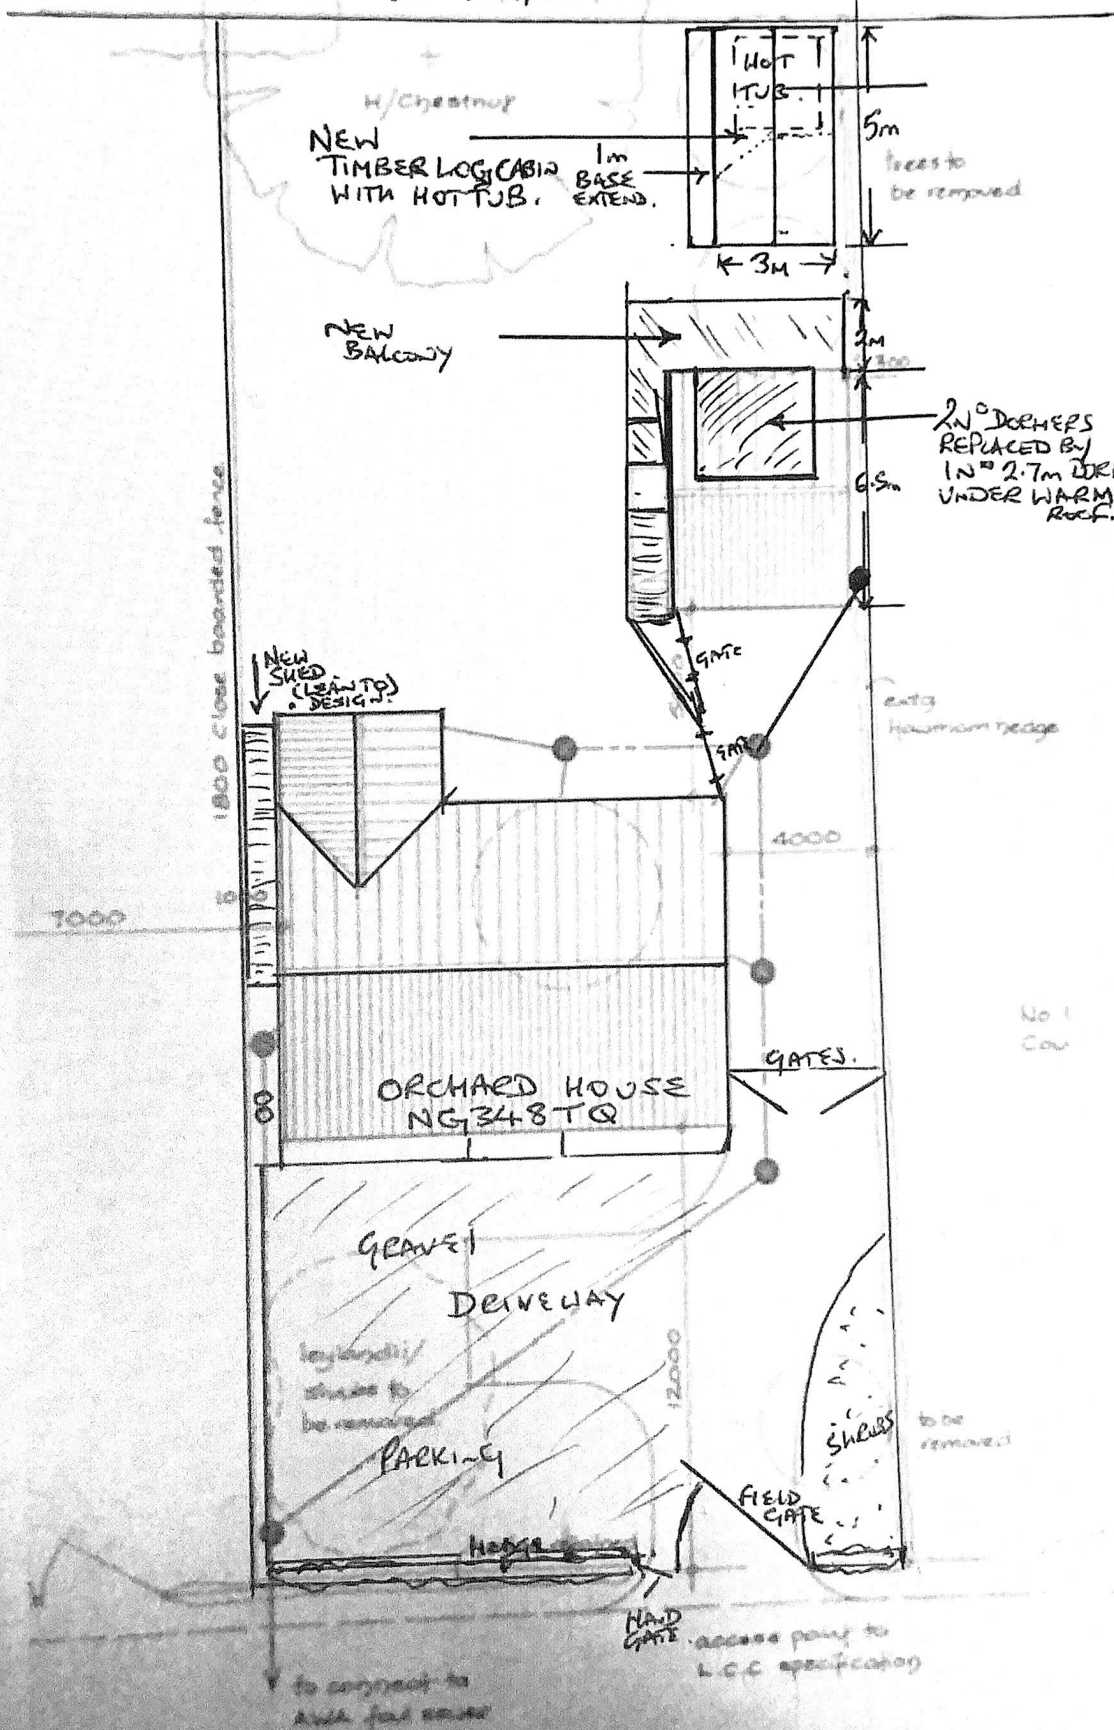 HOT
TUB.
5m
H/Chestnut
NEW
TIMBER LOG CABIN
WITH HOT TUB.
1m
BASE
EXTEND.
trees to
be removed
3M
NEW
BALCONY
2M
2No DORMERS
REPLACED BY
1No 2.7m DOR
UNDER WARM
ROOF.
6.5m
1800 close boarded fence
GATE
NEW
SHED
(LEAN TO)
DESIGN.
extg
Hawthorn hedge
GATE
4000
7000
No 1
GATES.
ORCHARD HOUSE
NG34 8TQ
GRAVEL
DRIVEWAY
leylandii/
shrubs to
be removed
12000
PARKING
SHRUBS
to be
removed
FIELD
GATE
HEDGE
HAND
GATE.
access point to
L.C.C specification
to connect to
foul sewer